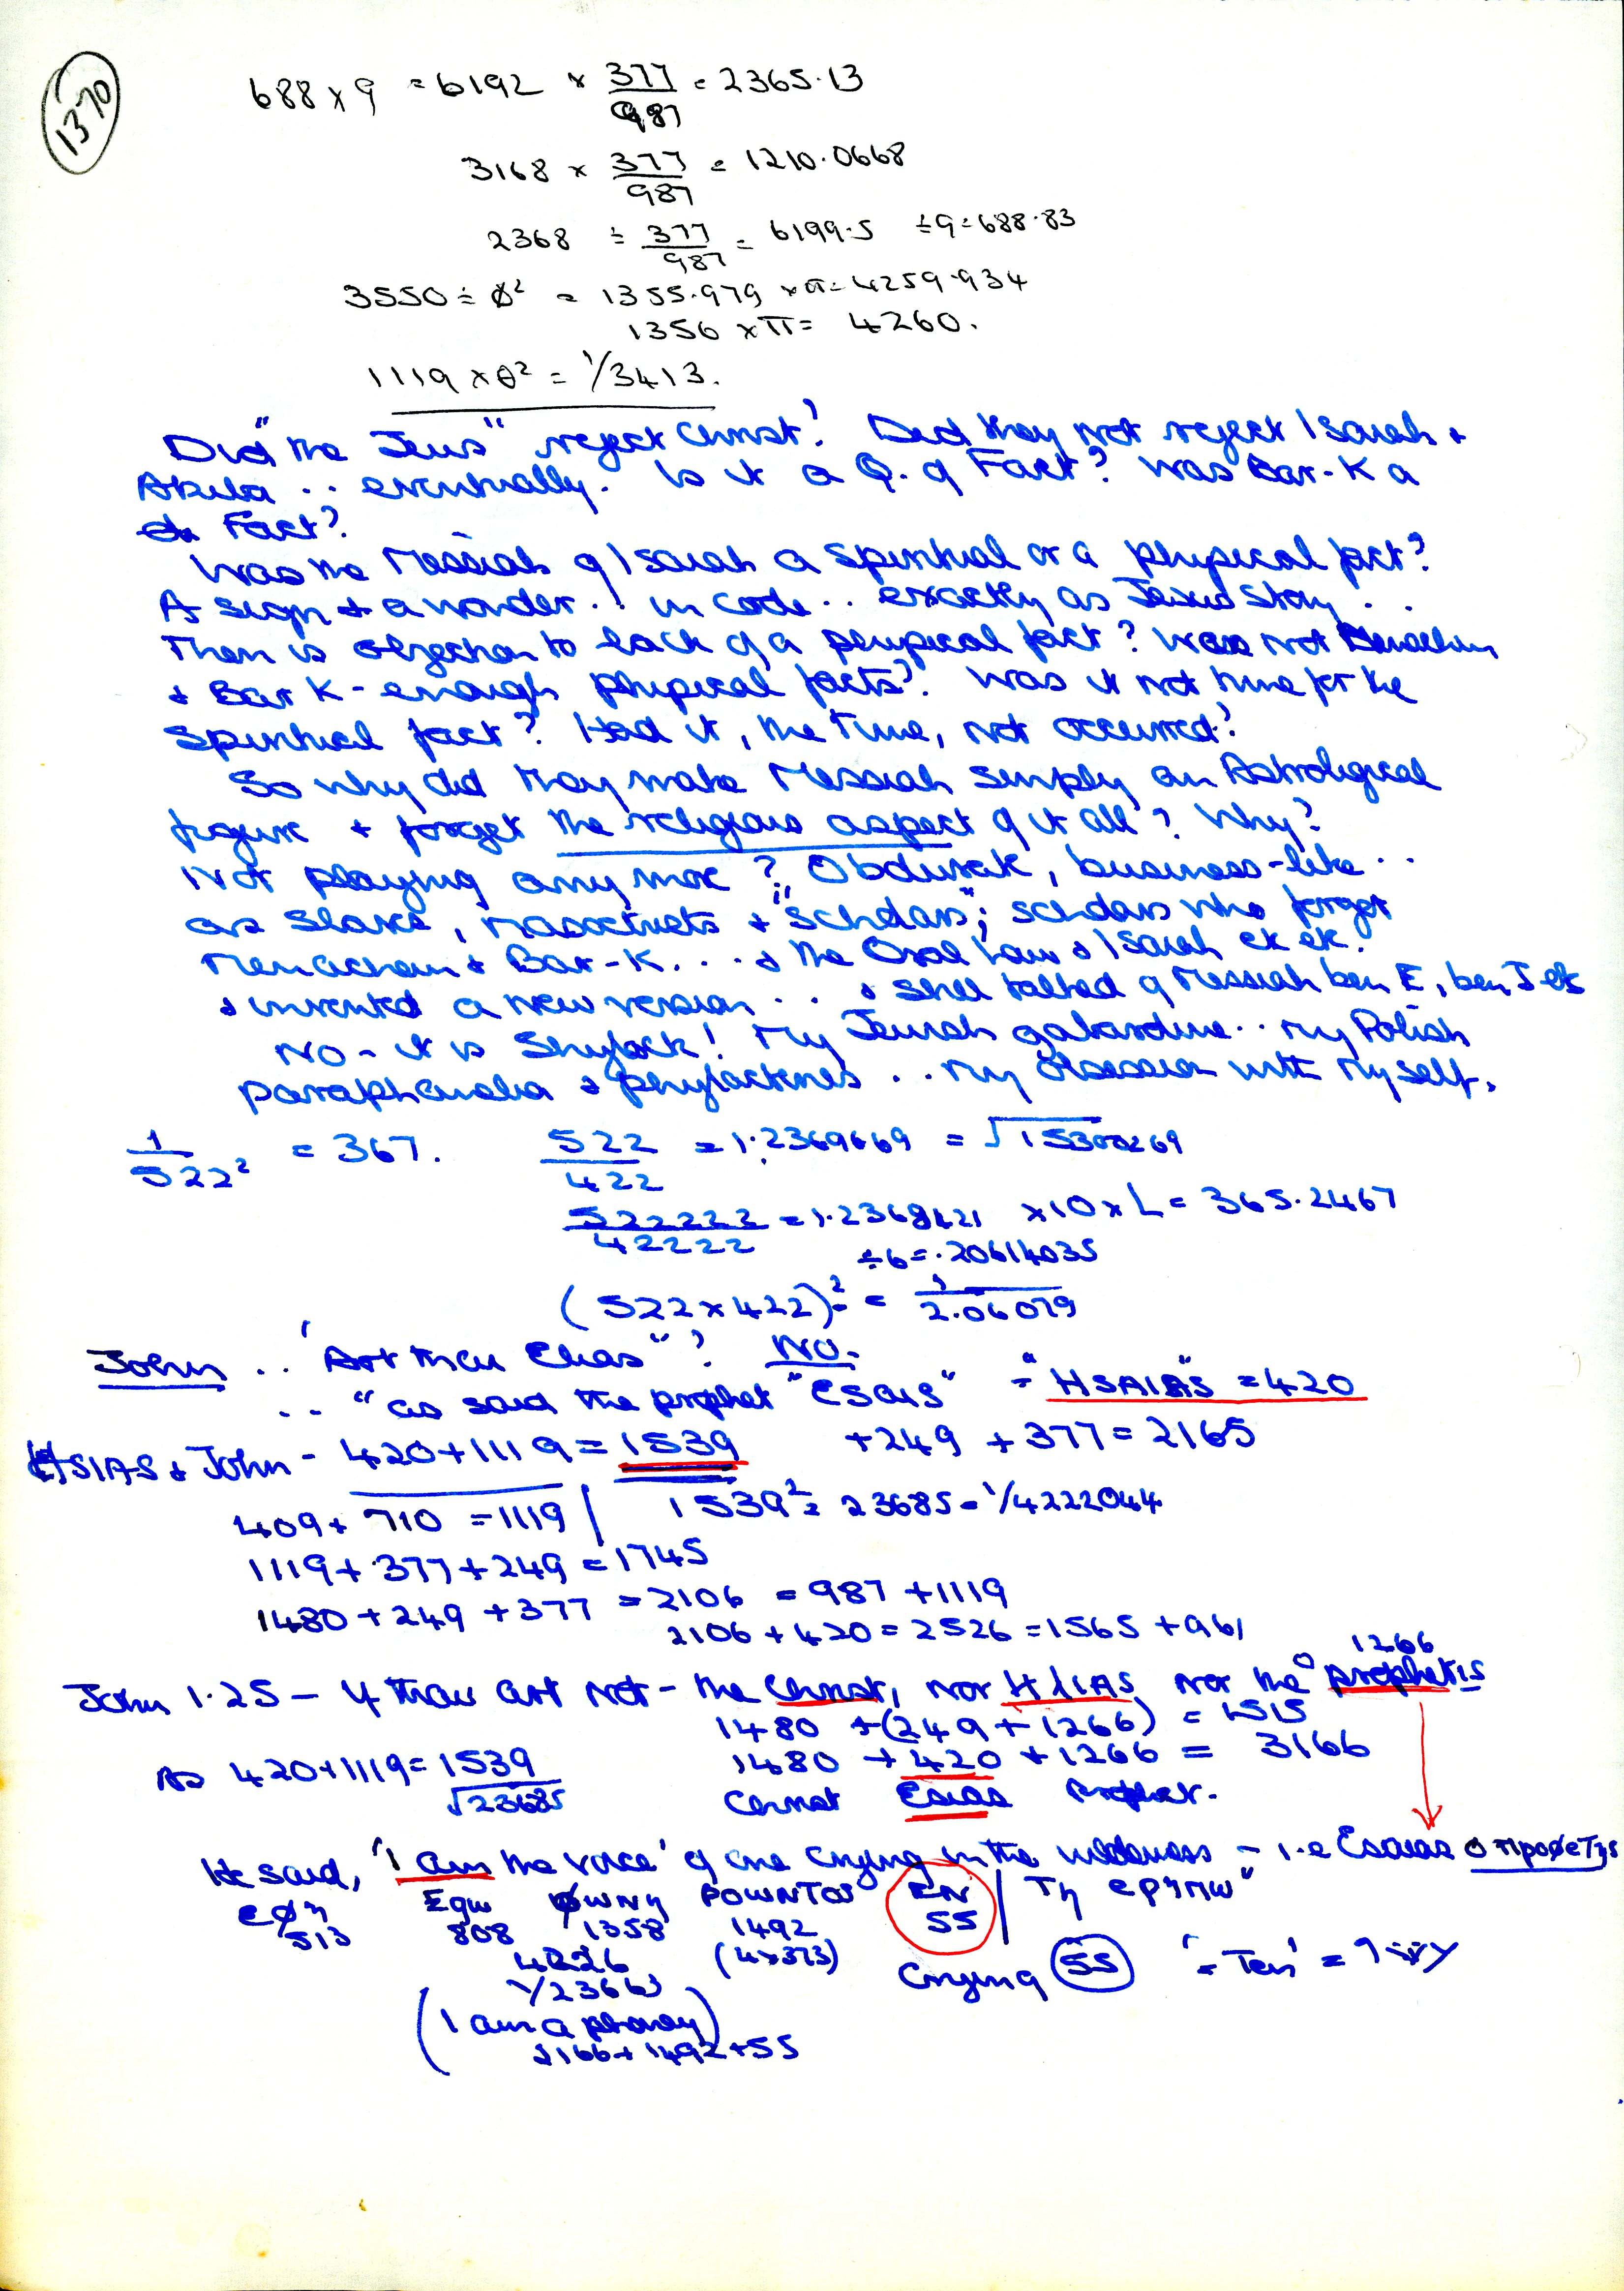 1370
688 x 9 = 6192 x 377/987 = 2365.13
3168 x 377/987 = 1210.0668
2368 ÷ 377/987 = 6199.5 ÷9=688.83
3550 ÷ ø² = 1355.979 x π= 4259.934
1356 x π = 4260.
1119 x θ² = 1/3413.
Did "the Jews" reject Christ? Did they not reject Isaiah +
Akiba .. eventually. Is it a Q. of Fact? Was Bar-K a
Fact?
Was the Messiah of Isaiah a spiritual or a physical fact?
A sign + a wonder..! in code .. exactly as Jesus Story ..
Then is objection to lack of a physical fact? Was not Menachem
+ Bar K - enough physical facts? Was it not time for the
spiritual fact? Had it, the Time, not occurred?
So why did they make Messiah simply an Astrological
figure + forget the religious aspect of it all? Why?
Not playing any more? Obdurate, business-like ..
as slaves, Masoretes + "scholars"; scholars who forget
Menachem + Bar-K. ... + the Oral Law + Isaiah etc etc.
+ invented a new version ... + still talked of Messiah ben E, ben J etc
No - it is Shylock! My Jewish gabardine .. my Polish
paraphenalia + phylacteries .. my obsession with Myself.
1/522² = 367. 522/422 = 1.2369669 = √15300269
522222/42222 = 1.2368421 x10 x L = 365.2467
÷6 = .20614035
(522 x 422)² = 1/2.06079
John .. 'Art thou Elias"? NO.
.. "as said the prophet "Esais" = "HSAIAS" = 420
HSIAS + John - 420+1119 = 1539 +249 +377 = 2165
409 + 710 = 1119 | 1539² = 23685 = 1/4222044
1119 + 377 + 249 = 1745
1480 + 249 + 377 = 2106 = 987 + 1119
2106 + 420 = 2526 = 1565 + 961
1266
John 1.25 - If thou art not - the Christ, nor HλIAS nor the O prophetis
1480 + (249 + 1266) = 1515
As 420+1119 = 1539 1480 + 420 + 1266 = 3166
√23685 Christ Esias Prophet.
He said, 'I am the voice' of one crying in the wilderness - i.e Esaias o προφετης
εφη Εgω φωνη βοωντοs EN | Τη ερημω"
513 808 1358 1492 55
4226 (4x373)
1/2366 Crying 55 '= Ten' =
(I am a phoney)
2166 + 1492 + 55